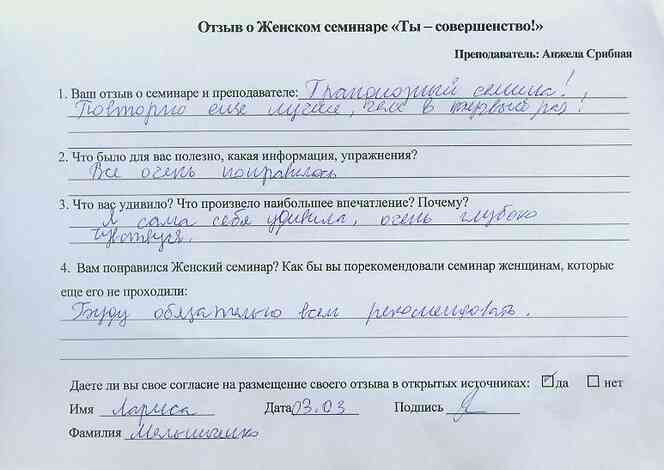 Отзыв о Женском семинаре «Ты – совершенство!»
Преподаватель: Анжела Срибная
1. Ваш отзыв о семинаре и преподавателе: Грандиозный семинар!
Повторно еще лучше, чем в первый раз!
2. Что было для вас полезно, какая информация, упражнения?
Все очень понравилось
3. Что вас удивило? Что произвело наибольшее впечатление? Почему?
Я сама себя удивила, очень глубоко
чувствуя.
4. Вам понравился Женский семинар? Как бы вы порекомендовали семинар женщинам, которые
еще его не проходили:
Буду обязательно всем рекомендовать.
Даете ли вы свое согласие на размещение своего отзыва в открытых источниках: да нет
Имя Лариса Дата 03.03 Подпись
Фамилия